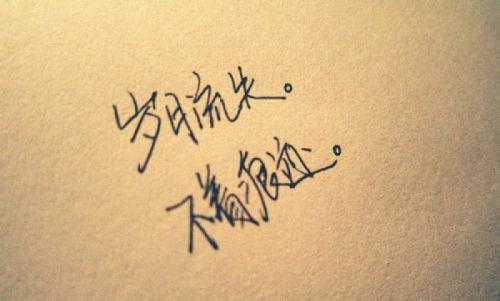 岁月流失。
不着痕迹。